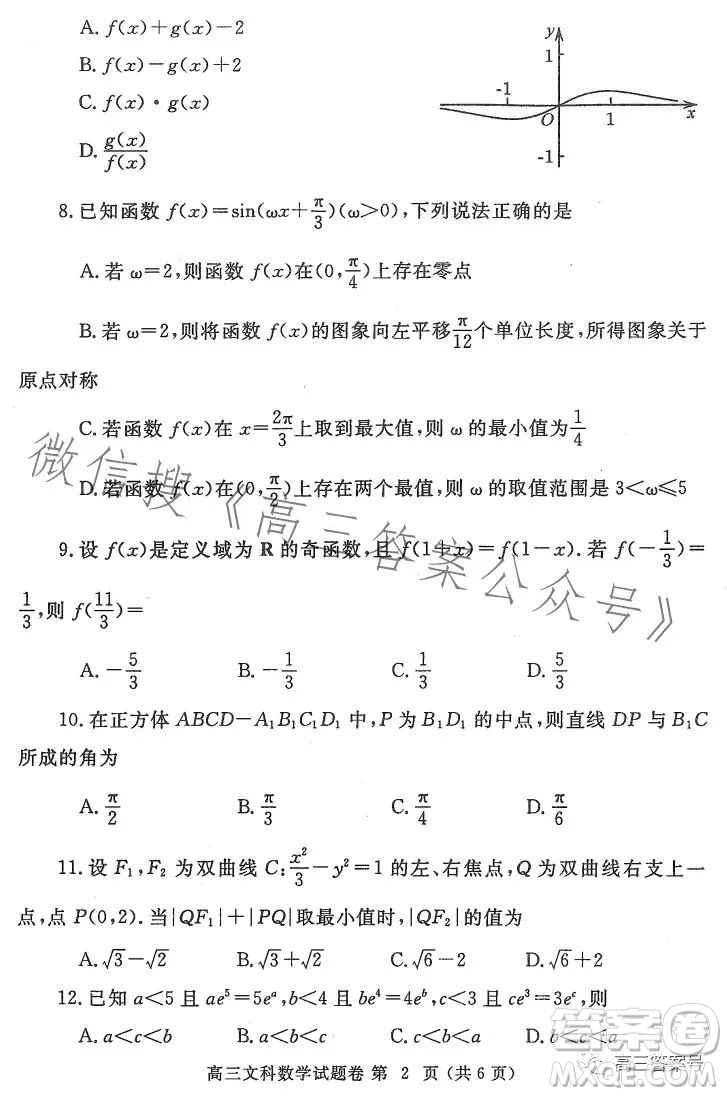 A. f(x)+g(x)−2
B. f(x)−g(x)+2
C. f(x)·g(x)
D. g(x)/f(x)
y
1
-1
O
1
x
-1
8. 已知函数 f(x)=sin(ωx+π/3)(ω>0),下列说法正确的是
A. 若 ω=2,则函数 f(x)在(0,π/4)上存在零点
B. 若 ω=2,则将函数 f(x)的图象向左平移π/12个单位长度,所得图象关于
原点对称
C. 若函数 f(x)在 x=2π/3上取到最大值,则 ω 的最小值为1/4
D. 若函数 f(x)在(0,π/2)上存在两个最值,则 ω 的取值范围是 3<ω≤5
9. 设 f(x)是定义域为 R 的奇函数,且 f(1+x)=f(1−x). 若 f(−1/3)=
1/3,则 f(11/3)=
A. −5/3 B. −1/3 C. 1/3 D. 5/3
10. 在正方体 ABCD−A₁B₁C₁D₁ 中,P 为 B₁D₁ 的中点,则直线 DP 与 B₁C
所成的角为
A. π/2 B. π/3 C. π/4 D. π/6
11. 设 F₁,F₂ 为双曲线 C:x²/3−y²=1 的左、右焦点,Q 为双曲线右支上一
点,点 P(0,2). 当|QF₁|+|PQ|取最小值时,|QF₂|的值为
A. √3−√2 B. √3+√2 C. √6−2 D. √6+2
12. 已知 a<5 且 ae⁵=5eᵃ,b<4 且 be⁴=4eᵇ,c<3 且 ce³=3eᶜ,则
A. a<c<b B. a<b<c C. c<b<a D. b<c<a
高三文科数学试题卷 第 2 页(共 6 页)
微信搜《高三答案公众号》
高三答案号
答案圈
MXQE.COM